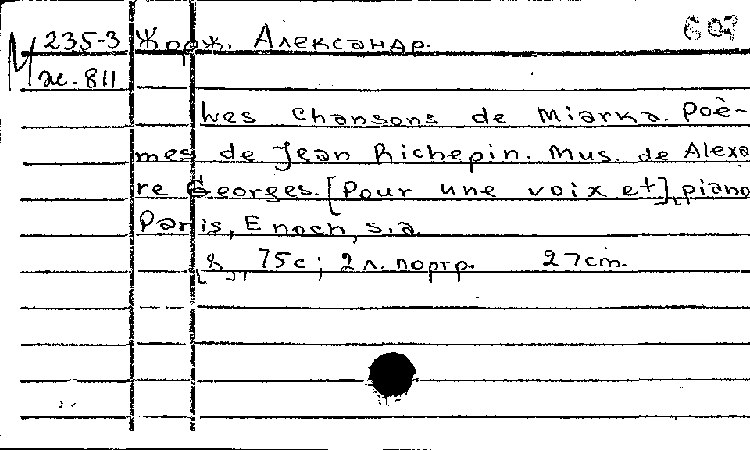 М 235-3 Жорж, Александр. 607
ж-811
Les chansons de Miarka. Poè-
mes de Jean Richepin. Mus. de Alexa
re Georges. [Pour une voix et], piano
Paris, Enoch, s.a.
75с; 2 л. портр. 27cm.